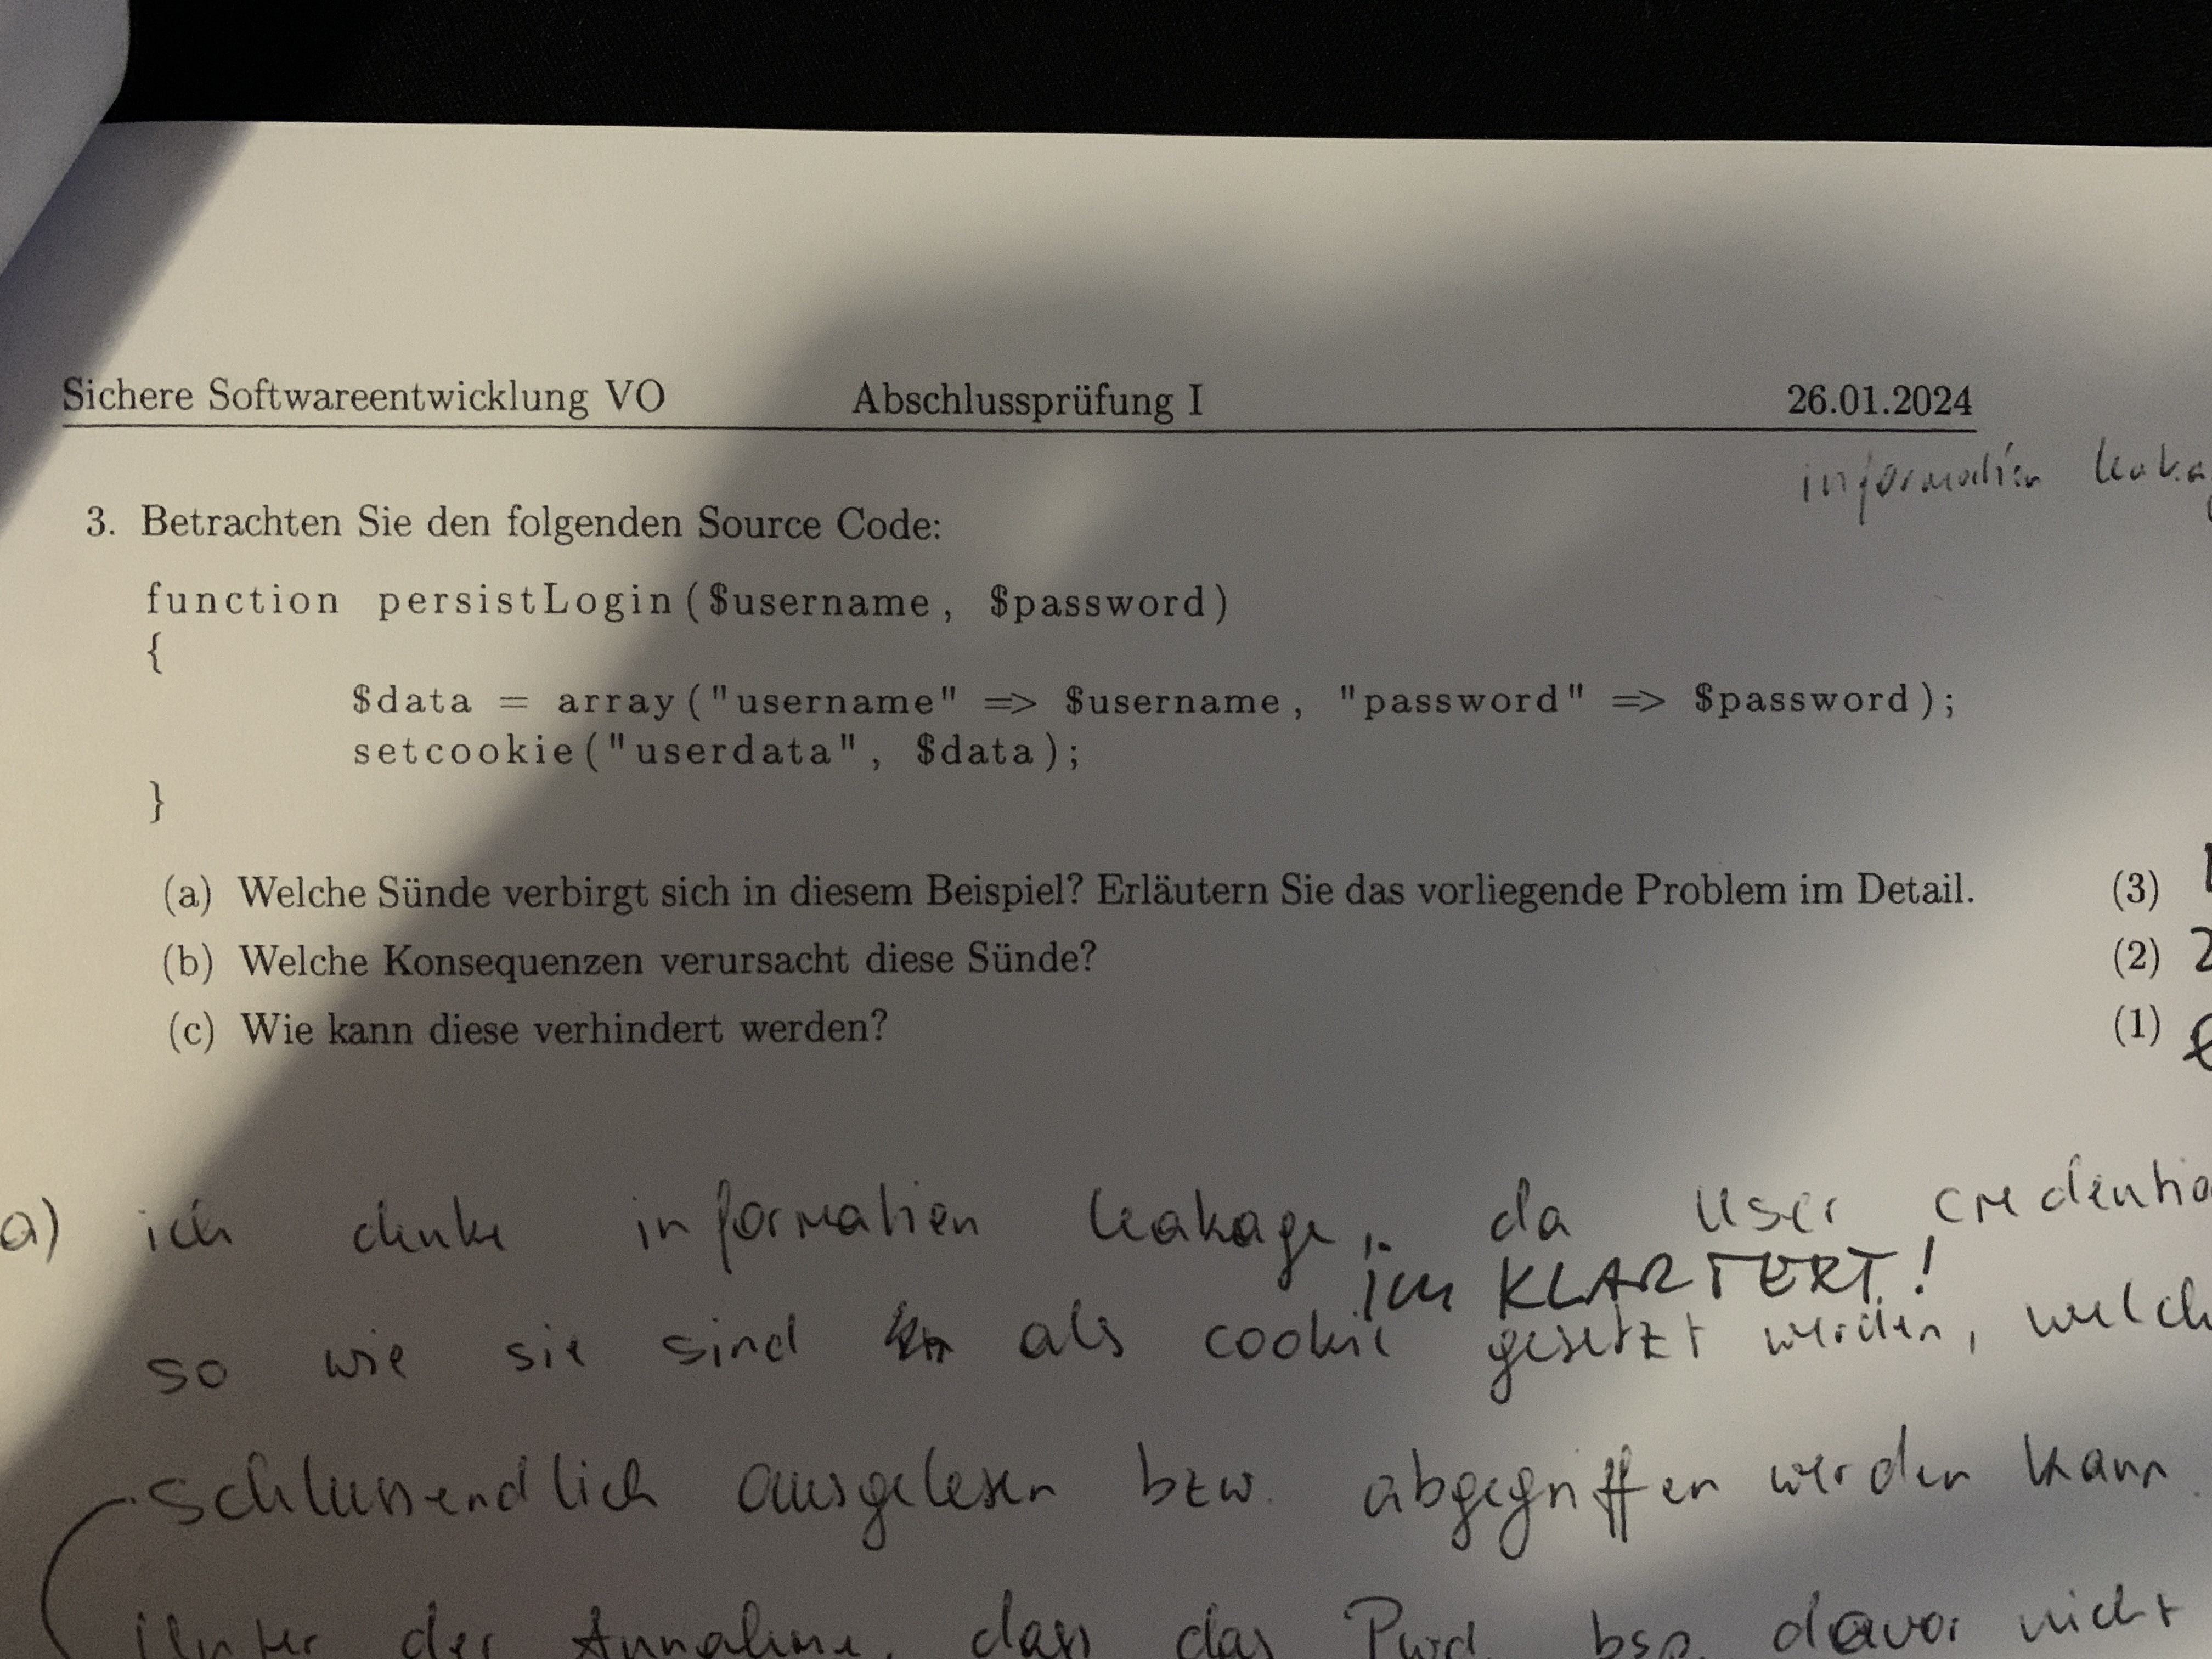 Sichere Softwareentwicklung VO Abschlussprüfung I 26.01.2024
information
3. Betrachten Sie den folgenden Source Code:
function persistLogin($username, $password)
{
$data = array("username" => $username, "password" => $password);
setcookie("userdata", $data);
}
(a) Welche Sünde verbirgt sich in diesem Beispiel? Erläutern Sie das vorliegende Problem im Detail. (3)
(b) Welche Konsequenzen verursacht diese Sünde? (2) 2
(c) Wie kann diese verhindert werden? (1)
a) ich denke information leakage, da User
im KLARTEXT!
so wie sie sind als cookie gesetzt werden,
schlussendlich ausgelesen bzw. abgegriffen werden kann.
Unter der Annahme, dass das Pwd bsp. davor nicht